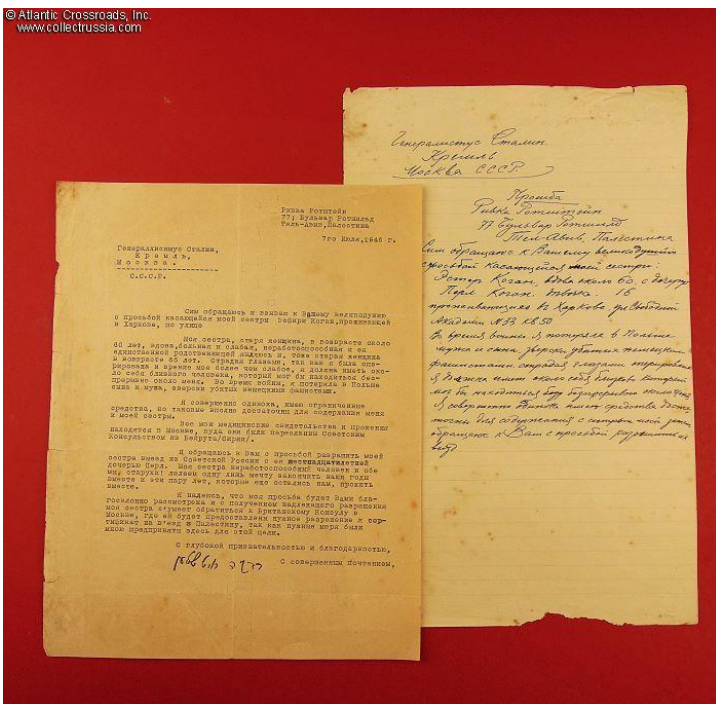 © Atlantic Crossroads, Inc.
www.collectrussia.com
Ривка Ротштейн
77, Бульвар Ротшильд
Тель-Авив, Палестина
7го Июля, 1946 г.
Генералиссимусу Сталину,
Кремль,
Москва.
С.С.С.Р.
Сим обращаюсь и взываю к Вашему великодушию
с просьбой касающейся моей сестры Коган, проживающей
в Харькове, по улице
Моя сестра, старая женщина, в возрасте около
60 лет, вдова, больная и слабая, неработоспособная и её
единственной родственницей являюсь я, тоже старая женщина
в возрасте 65 лет. Страдая глазами, так как я была опе-
рирована и зрение мое более чем слабое, я должна иметь око-
ло себя близкого человека, который мог бы находиться бес-
прерывно около меня. Во время войны, я потеряла в Польше
сына и мужа, зверски убитых немецкими фашистами.
Я совершенно одинока, имею ограниченные
средства, но таковые вполне достаточны для содержания меня
и моей сестры.
Все мои медицинские свидетельства и прошения
находятся в Москве, куда они были пересланы Советским
Консульством из Бейрута/Сирии/.
Я обращаюсь к Вам с просьбой разрешить моей
сестре выезд из Советской России с её шестнадцатилетней
дочерью Перл. Моя сестра неработоспособный человек и обе
мы, старухи! лелеем одну лишь мечту закончить наши годы
вместе и эти пару лет, которые еще остались нам, прожить
вместе.
Я надеюсь, что моя просьба будет Вами бла-
госклонно рассмотрена и с получением надлежащего разрешения
моя сестра сумеет обратиться к Британскому Консулу в
Москве, где ей будет предоставлен нужное разрешение и сер-
тификат на в'езд в Палестину, так как нужные меры были
мною предприняты здесь для этой цели.
С глубокой признательностью и благодарностью,
С совершенным почтением,
Генералистус Сталин.
Кремль
Москва СССР.
Прошба
Ривка Ротштейн
77 Бульвар Ротшилд
Тел-Авив, Палестина
Сим обращаюс к Вашему великодушию
с просьбой касающейся моей сестри.
Эстер Коган, вдова около 60, с дочерью
Перл Коган. 16
проживающих в Харкове ул Свободи
Академии N53 кв 50
Во время войны я потеряла в Польше
мужа и сина, зверски убитых немецкими
фашистами. страдая глазами
Я должна имет около себя которий
мог бы находиться около меня
Я совершенно имею средства
для содержания с сестрой
обращаюс к Вам с просьбой разрешит